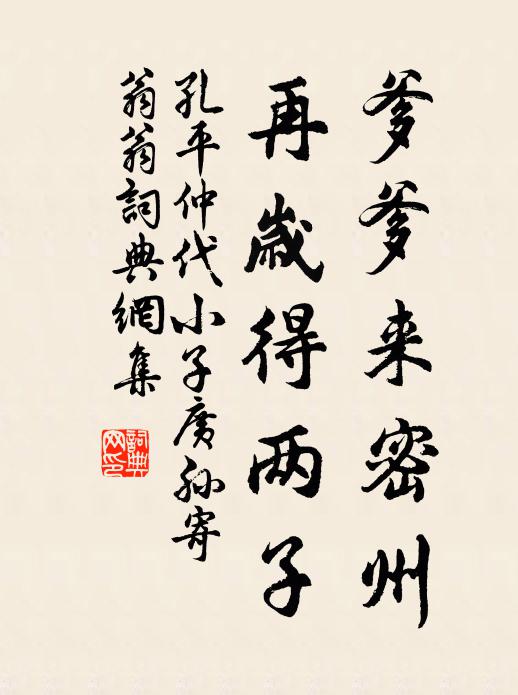 爹爹来密州
再歳得两子
孔平仲代小子廣孙寄
翁翁詞典網集
詞典
网印